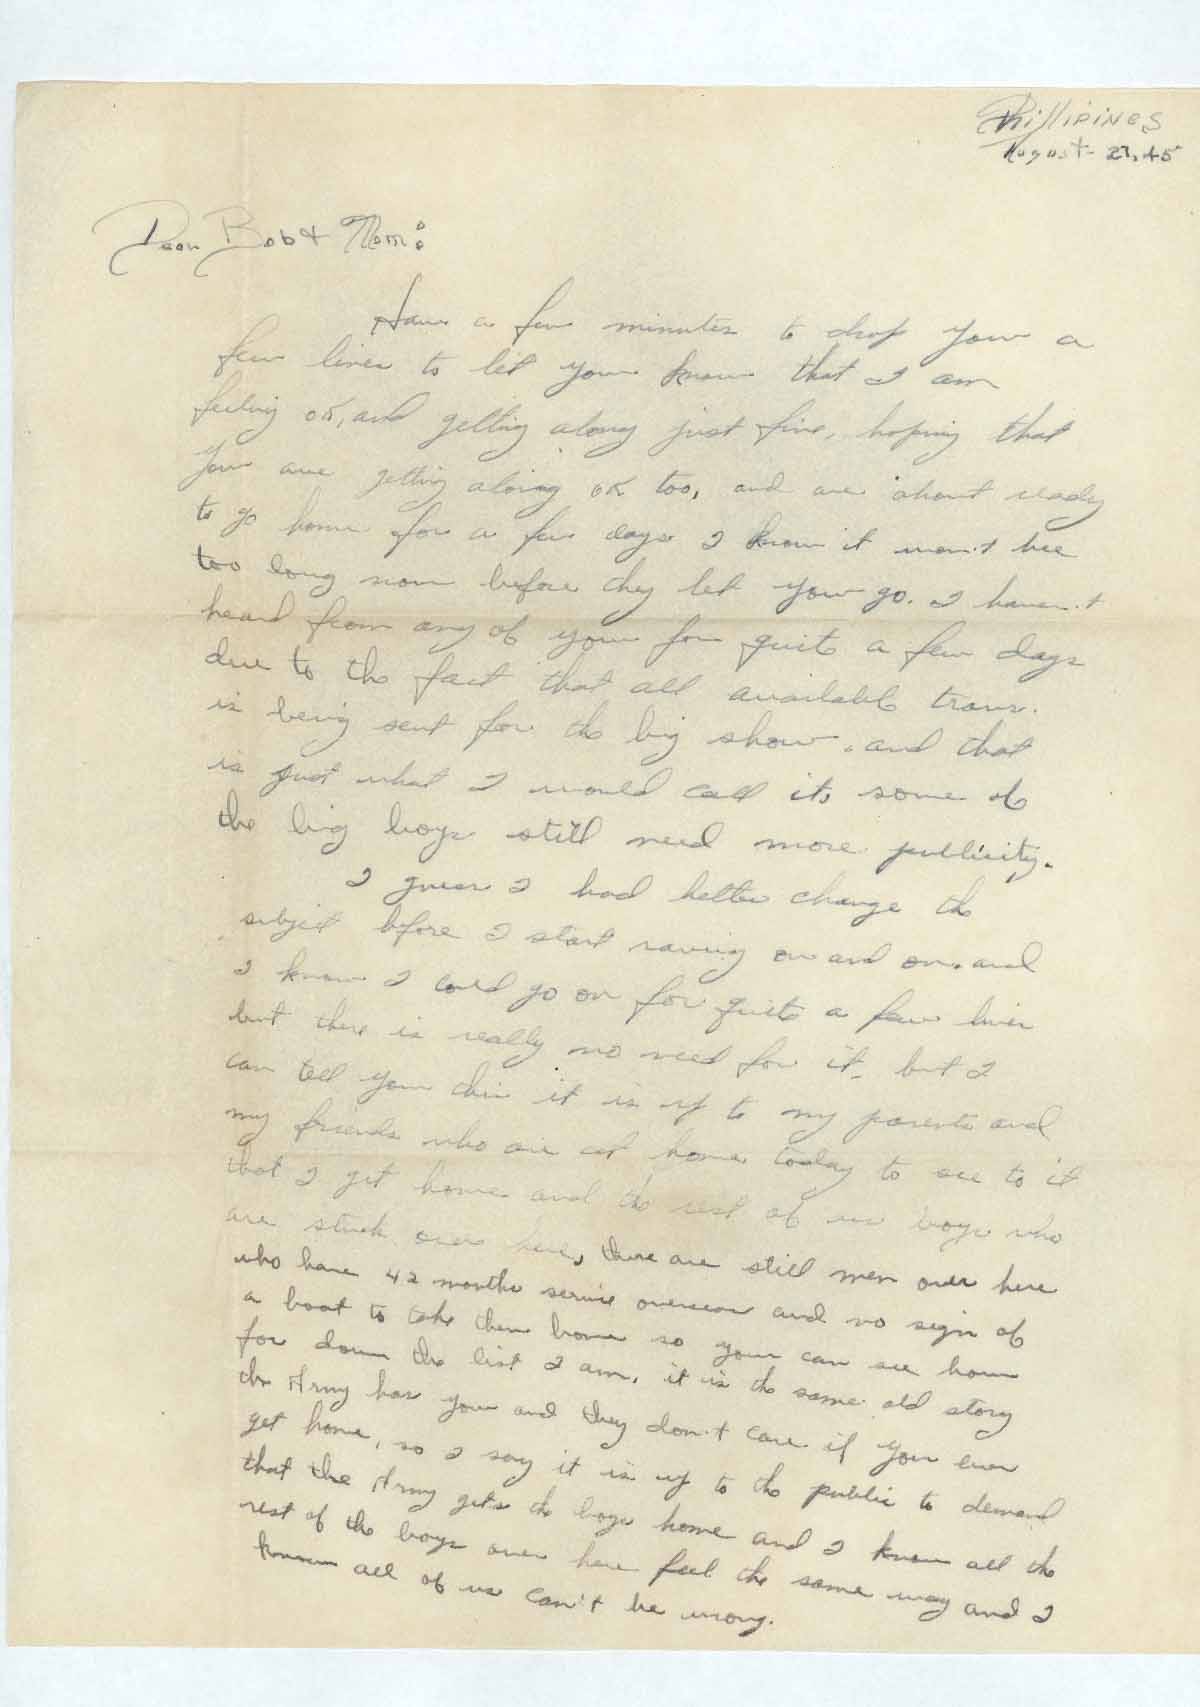 Phillipines
August 27, 45
Dear Bob & Mom:
Have a few minutes to drop you a
few lines to let you know that I am
feeling OK, and getting along just fine, hoping that
you are getting along OK too, and are about ready
to go home for a few days I know it won't bee
too long now before they let you go. I haven't
heard from any of you for quite a few days
due to the fact that all available trans.
is being sent for the big show. and that
is just what I would call it, some of
the big boys still need more publicity.
I guess I had better change the
subject before I start raving on and on. and
I know I could go on for quite a few lines
but there is really no need for it. but I
can tell you this it is up to my parents and
my friends who are at home today to see to it
that I get home and the rest of us boys who
are stuck over here, there are still men over here
who have 42 months service overseas and no sign of
a boat to take them home so you can see how
far down the list I am. it is the same old story
the Army has you and they don't care if you ever
get home, so I say it is up to the public to demand
that the Army gets the boys home and I know all the
rest of the boys over here feel the same way and I
know all of us can't be wrong.